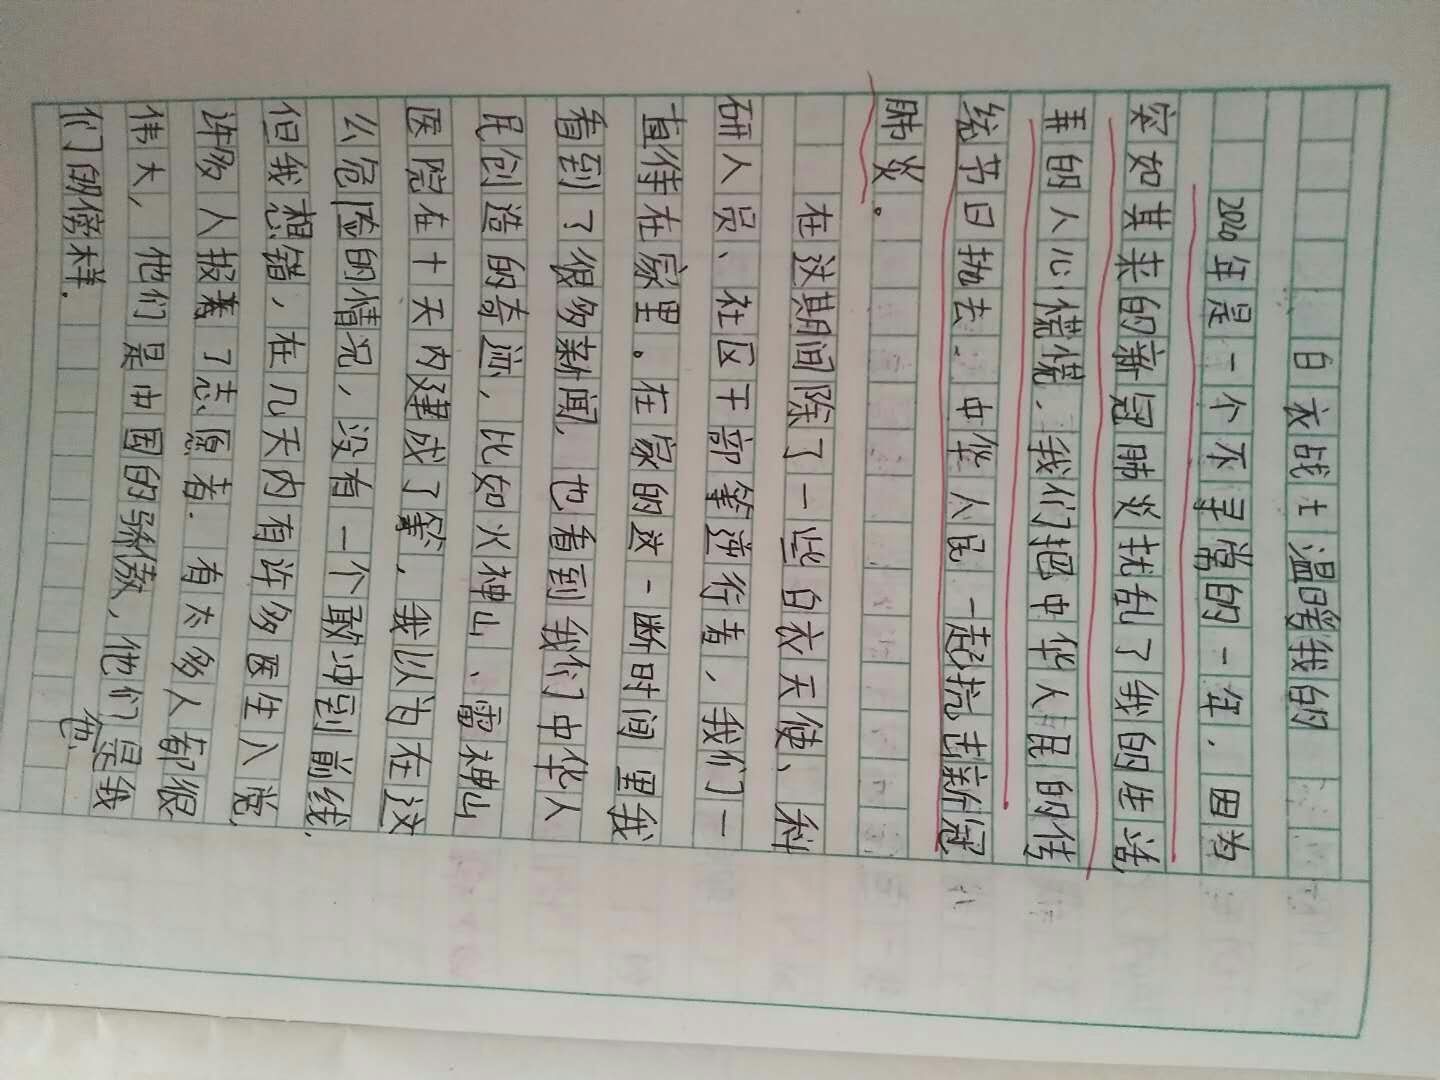 白衣战士温暖我的
2020年是一个不寻常的一年.因为
突如其来的新冠肺炎扰乱了我的生活,
弄的人心慌慌.我们把中华人民的传
统节日抛去.中华人民一起抗击新冠
肺炎。
在这期间除了一些白衣天使、科
研人员、社区干部等逆行者,我们一
直待在家里。在家的这一断时间里我
看到了很多新闻,也看到我们中华人
民创造的奇迹,比如火神山、雷神山
医院在十天内建成了等,我以为在这
么危险的情况,没有一个敢冲到前线,
但我想错,在几天内有许多医生入党,
许多人报着了志愿者.有太多人都很
伟大,他们是中国的骄傲,他们是我
们的傍样.
他